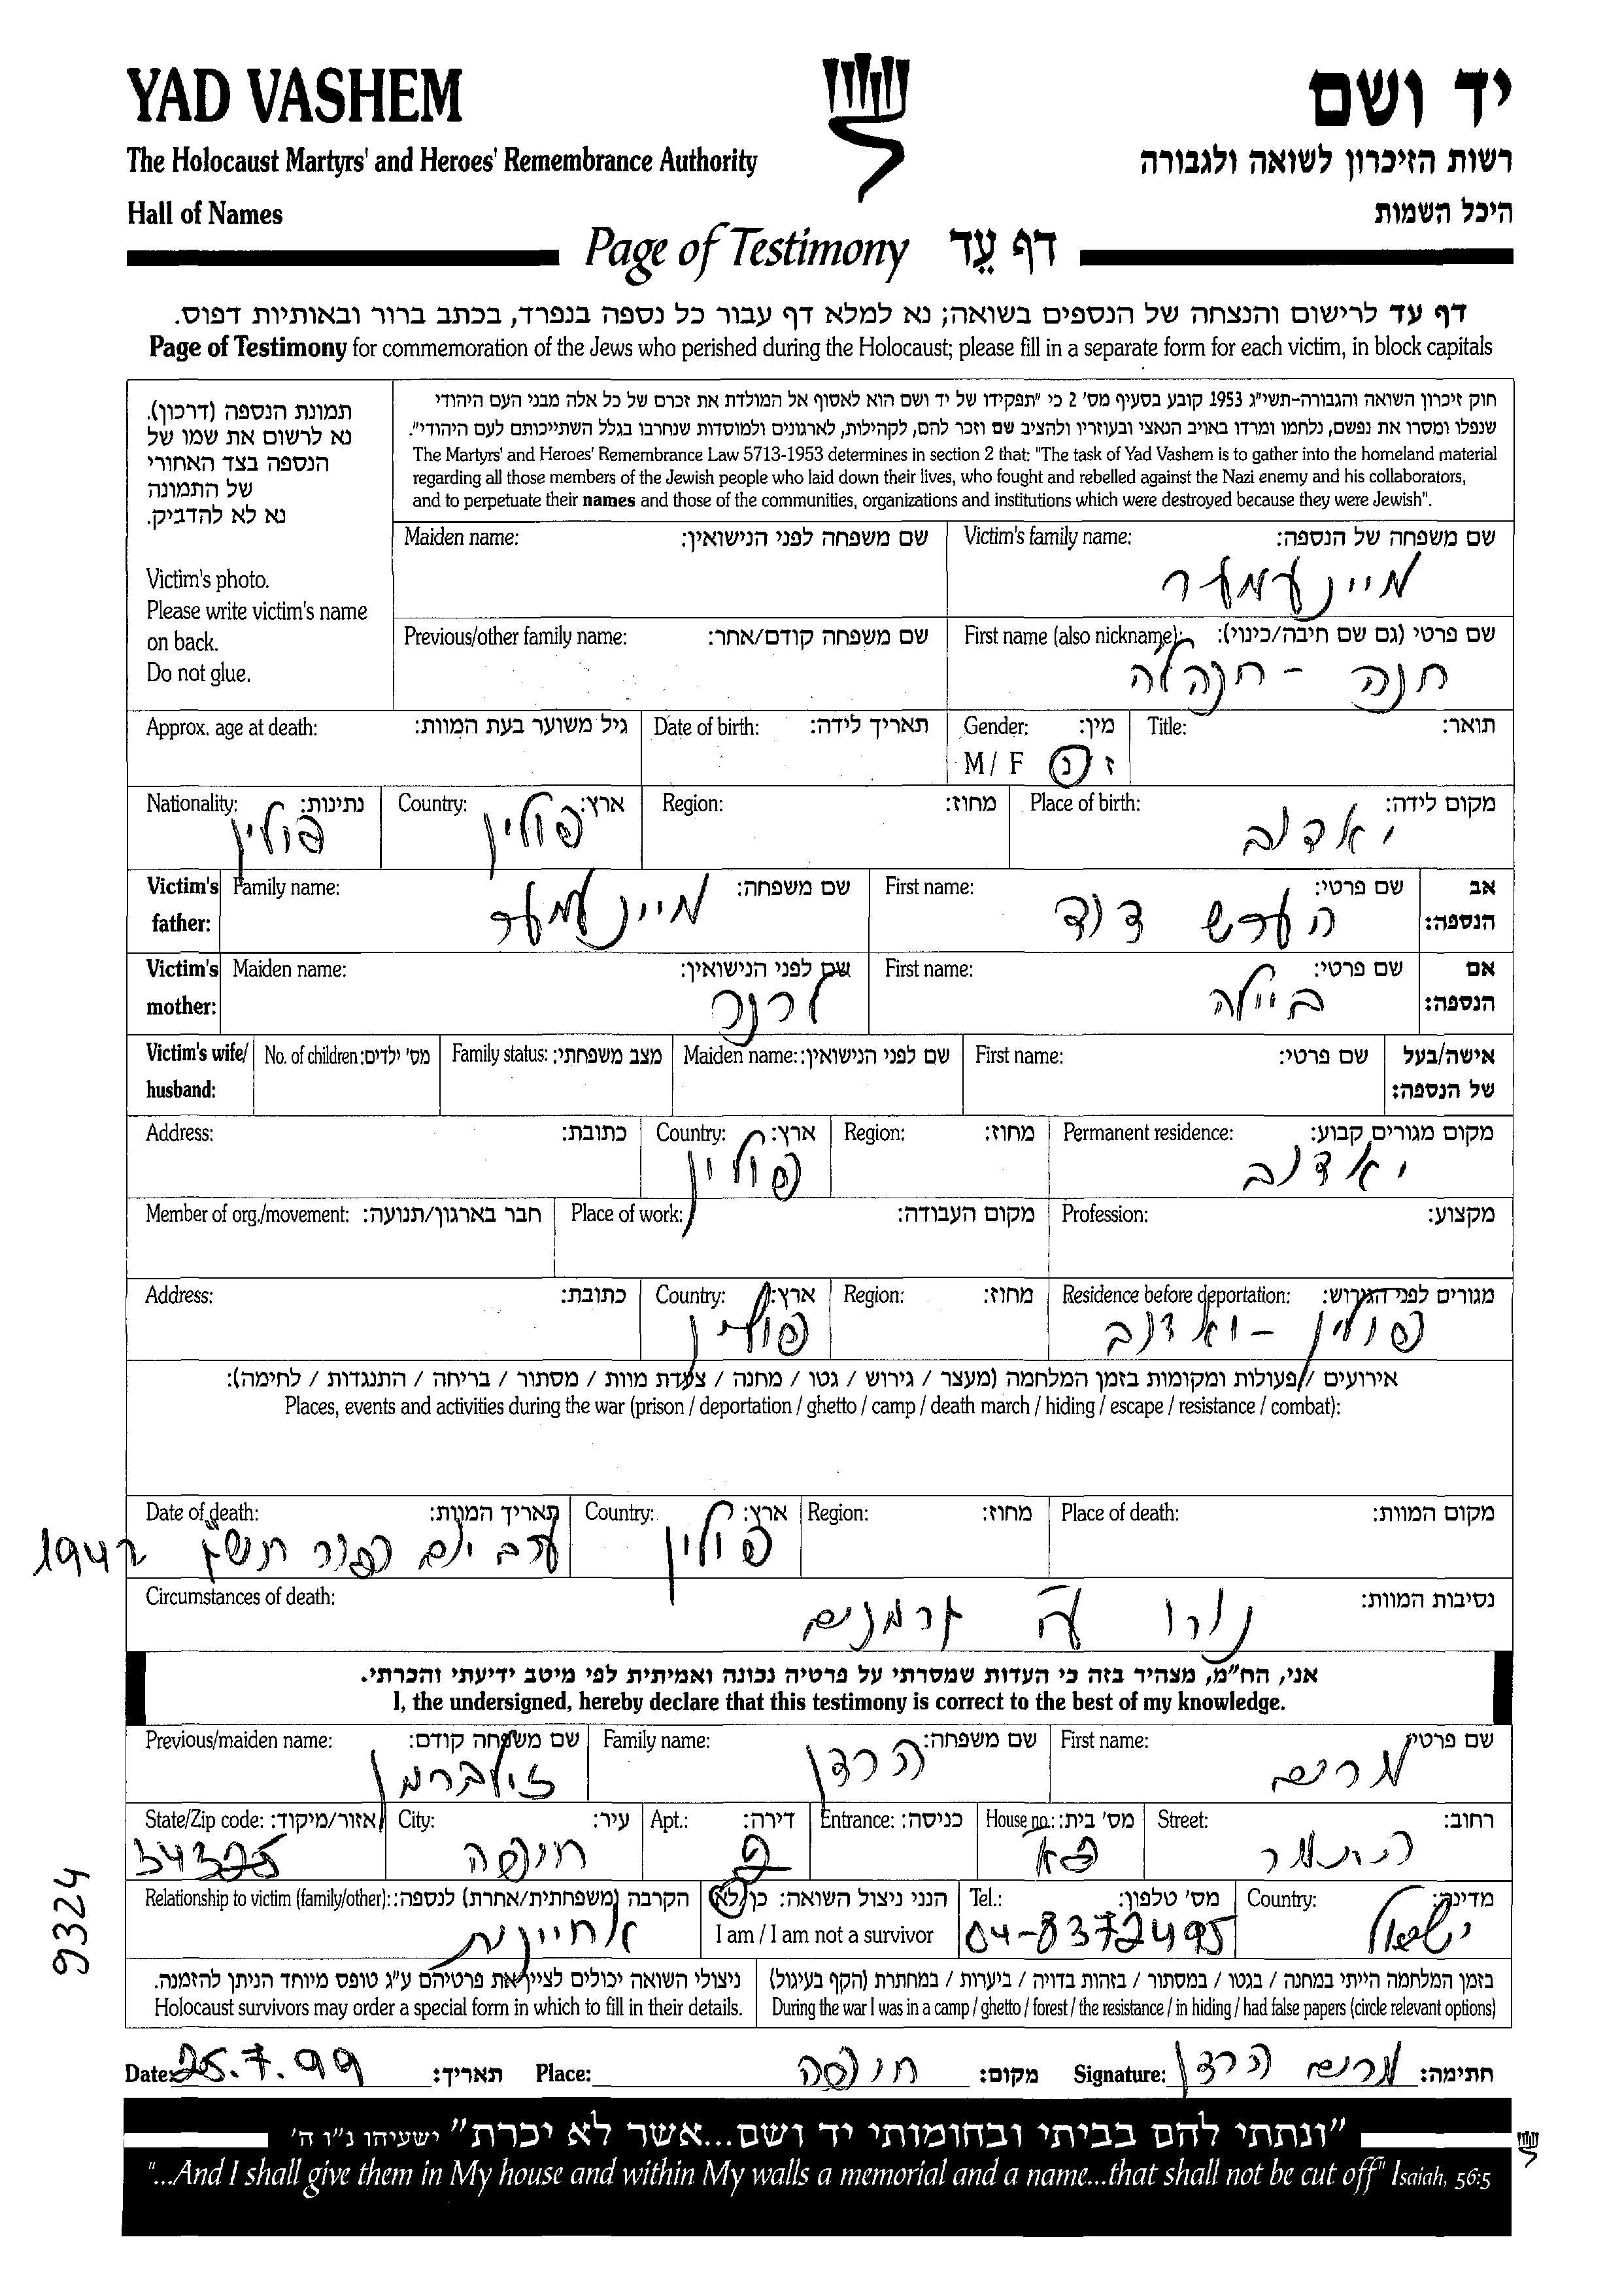 YAD VASHEM
יד ושם
The Holocaust Martyrs' and Heroes' Remembrance Authority
רשות הזיכרון לשואה ולגבורה
Hall of Names
היכל השמות
Page of Testimony דף עֵד
דף עד לרישום והנצחה של הנספים בשואה; נא למלא דף עבור כל נספה בנפרד, בכתב ברור ובאותיות דפוס.
Page of Testimony for commemoration of the Jews who perished during the Holocaust; please fill in a separate form for each victim, in block capitals
תמונת הנספה (דרכון).
נא לרשום את שמו של
הנספה בצד האחורי
של התמונה
נא לא להדביק.
Victim's photo.
Please write victim's name
on back.
Do not glue.
חוק זיכרון השואה והגבורה-תשי"ג 1953 קובע בסעיף מס' 2 כי "תפקידו של יד ושם הוא לאסוף אל המולדת את זכרם של כל אלה מבני העם היהודי
שנפלו ומסרו את נפשם, נלחמו ומרדו באויב הנאצי ובעוזריו ולהציב שם וזכר להם, לקהילות, לארגונים ולמוסדות שנחרבו בגלל השתייכותם לעם היהודי".
The Martyrs' and Heroes' Remembrance Law 5713-1953 determines in section 2 that: "The task of Yad Vashem is to gather into the homeland material
regarding all those members of the Jewish people who laid down their lives, who fought and rebelled against the Nazi enemy and his collaborators,
and to perpetuate their names and those of the communities, organizations and institutions which were destroyed because they were Jewish".
Victim's family name: שם משפחה של הנספה:
מיינעמער
Maiden name: שם משפחה לפני הנישואין:
First name (also nickname): שם פרטי (גם שם חיבה/כינוי):
חנה - חנהלה
Previous/other family name: שם משפחה קודם/אחר:
Title: תואר:
Gender: מין:
M / F ז נ
Date of birth: תאריך לידה:
Approx. age at death: גיל משוער בעת המוות:
Place of birth: מקום לידה:
יאדוב
Region: מחוז:
Country: ארץ:
פולין
Nationality: נתינות:
פולין
Victim's father: אב הנספה:
First name: שם פרטי:
הערש דוד
Family name: שם משפחה:
מיינעמער
Victim's mother: אם הנספה:
First name: שם פרטי:
ביילה
Maiden name: שם לפני הנישואין:
לרנר
Victim's wife/ husband: אישה/בעל של הנספה:
First name: שם פרטי:
Maiden name: שם לפני הנישואין:
Family status: מצב משפחתי:
No. of children: מס' ילדים:
Permanent residence: מקום מגורים קבוע:
יאדוב
Region: מחוז:
Country: ארץ:
פולין
Address: כתובת:
Profession: מקצוע:
Place of work: מקום העבודה:
Member of org./movement: חבר בארגון/תנועה:
Residence before deportation: מגורים לפני הגירוש:
פולין - יאדוב
Region: מחוז:
Country: ארץ:
פולין
Address: כתובת:
אירועים / פעולות ומקומות בזמן המלחמה (מעצר / גירוש / גטו / מחנה / צעדת מוות / מסתור / בריחה / התנגדות / לחימה):
Places, events and activities during the war (prison / deportation / ghetto / camp / death march / hiding / escape / resistance / combat):
Place of death: מקום המוות:
Region: מחוז:
Country: ארץ:
פולין
Date of death: תאריך המוות:
ערב יום כפור תש"ג 1942
Circumstances of death: נסיבות המוות:
נורו ע"י גרמנים
אני, הח"מ, מצהיר בזה כי העדות שמסרתי על פרטיה נכונה ואמיתית לפי מיטב ידיעתי והכרתי.
I, the undersigned, hereby declare that this testimony is correct to the best of my knowledge.
First name: שם פרטי
מרים
Family name: שם משפחה:
הרדן
Previous/maiden name: שם משפחה קודם:
זילברמן
Street: רחוב:
התמר
House no.: מס' בית:
Entrance: כניסה:
Apt.: דירה:
City: עיר:
חיפה
State/Zip code: אזור/מיקוד:
34325
Country: מדינה:
ישראל
Tel.: מס' טלפון:
04-8372495
הנני ניצול השואה: כן / לא
I am / I am not a survivor
Relationship to victim (family/other): הקרבה (משפחתית/אחרת) לנספה:
אחיינית
9324
בזמן המלחמה הייתי במחנה / בגטו / במסתור / בזהות בדויה / ביערות / במחתרת (הקף בעיגול)
During the war I was in a camp / ghetto / forest / the resistance / in hiding / had false papers (circle relevant options)
ניצולי השואה יכולים לציין את פרטיהם ע"ג טופס מיוחד הניתן להזמנה.
Holocaust survivors may order a special form in which to fill in their details.
Date: 25.7.99 תאריך: Place: חיפה מקום: Signature: מרים הרדן חתימה:
"ונתתי להם בביתי ובחומותי יד ושם...אשר לא יכרת" ישעיהו נ"ו ה'
"...And I shall give them in My house and within My walls a memorial and a name...that shall not be cut off" Isaiah, 56:5